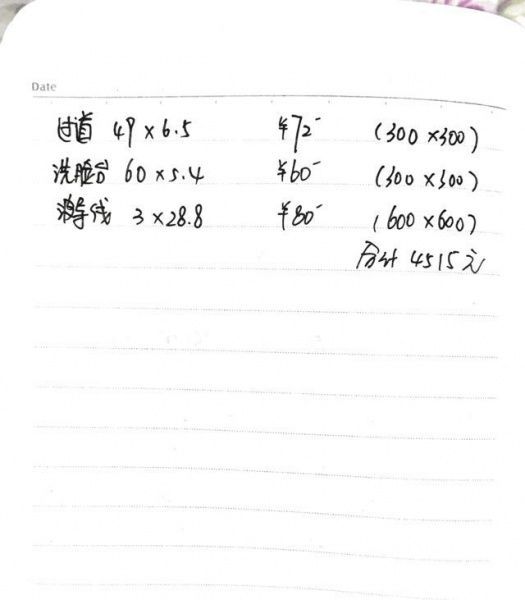 Date
过道 49×6.5 ¥72- (300×300)
洗脸台 60×5.4 ¥60- (300×300)
3×28.8 ¥80- (600×600)
合计 4515元